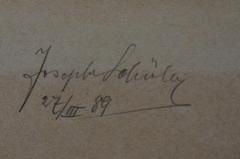 Joseph Schüler
27/III 89